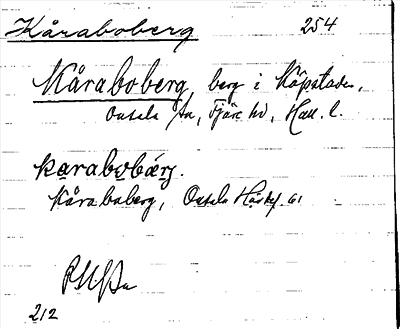 Kåraboberg 254
Kåraboberg, berg i Köpstaden,
Onsala sn, Fjäre hd, Hall. l.
karabobærj.
Kåraboberg, Onsala Häskf. 61
212